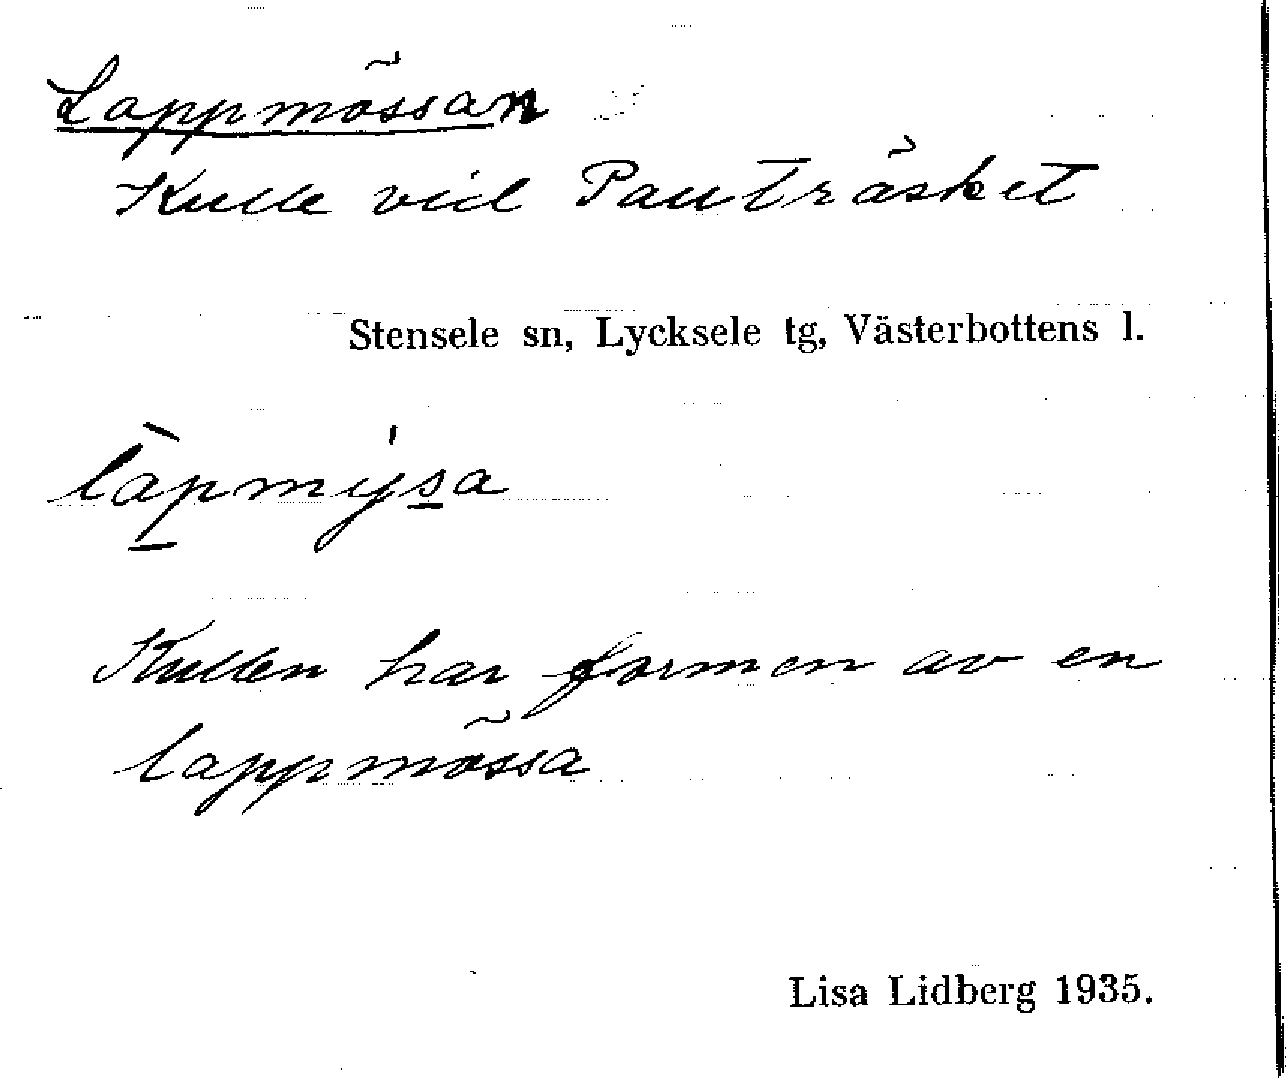 Lappmössan
Kulle vid Pauträsket
Stensele sn, Lycksele tg, Västerbottens l.
làpmýsa
Kullen har formen av en
lappmössa
Lisa Lidberg 1935.